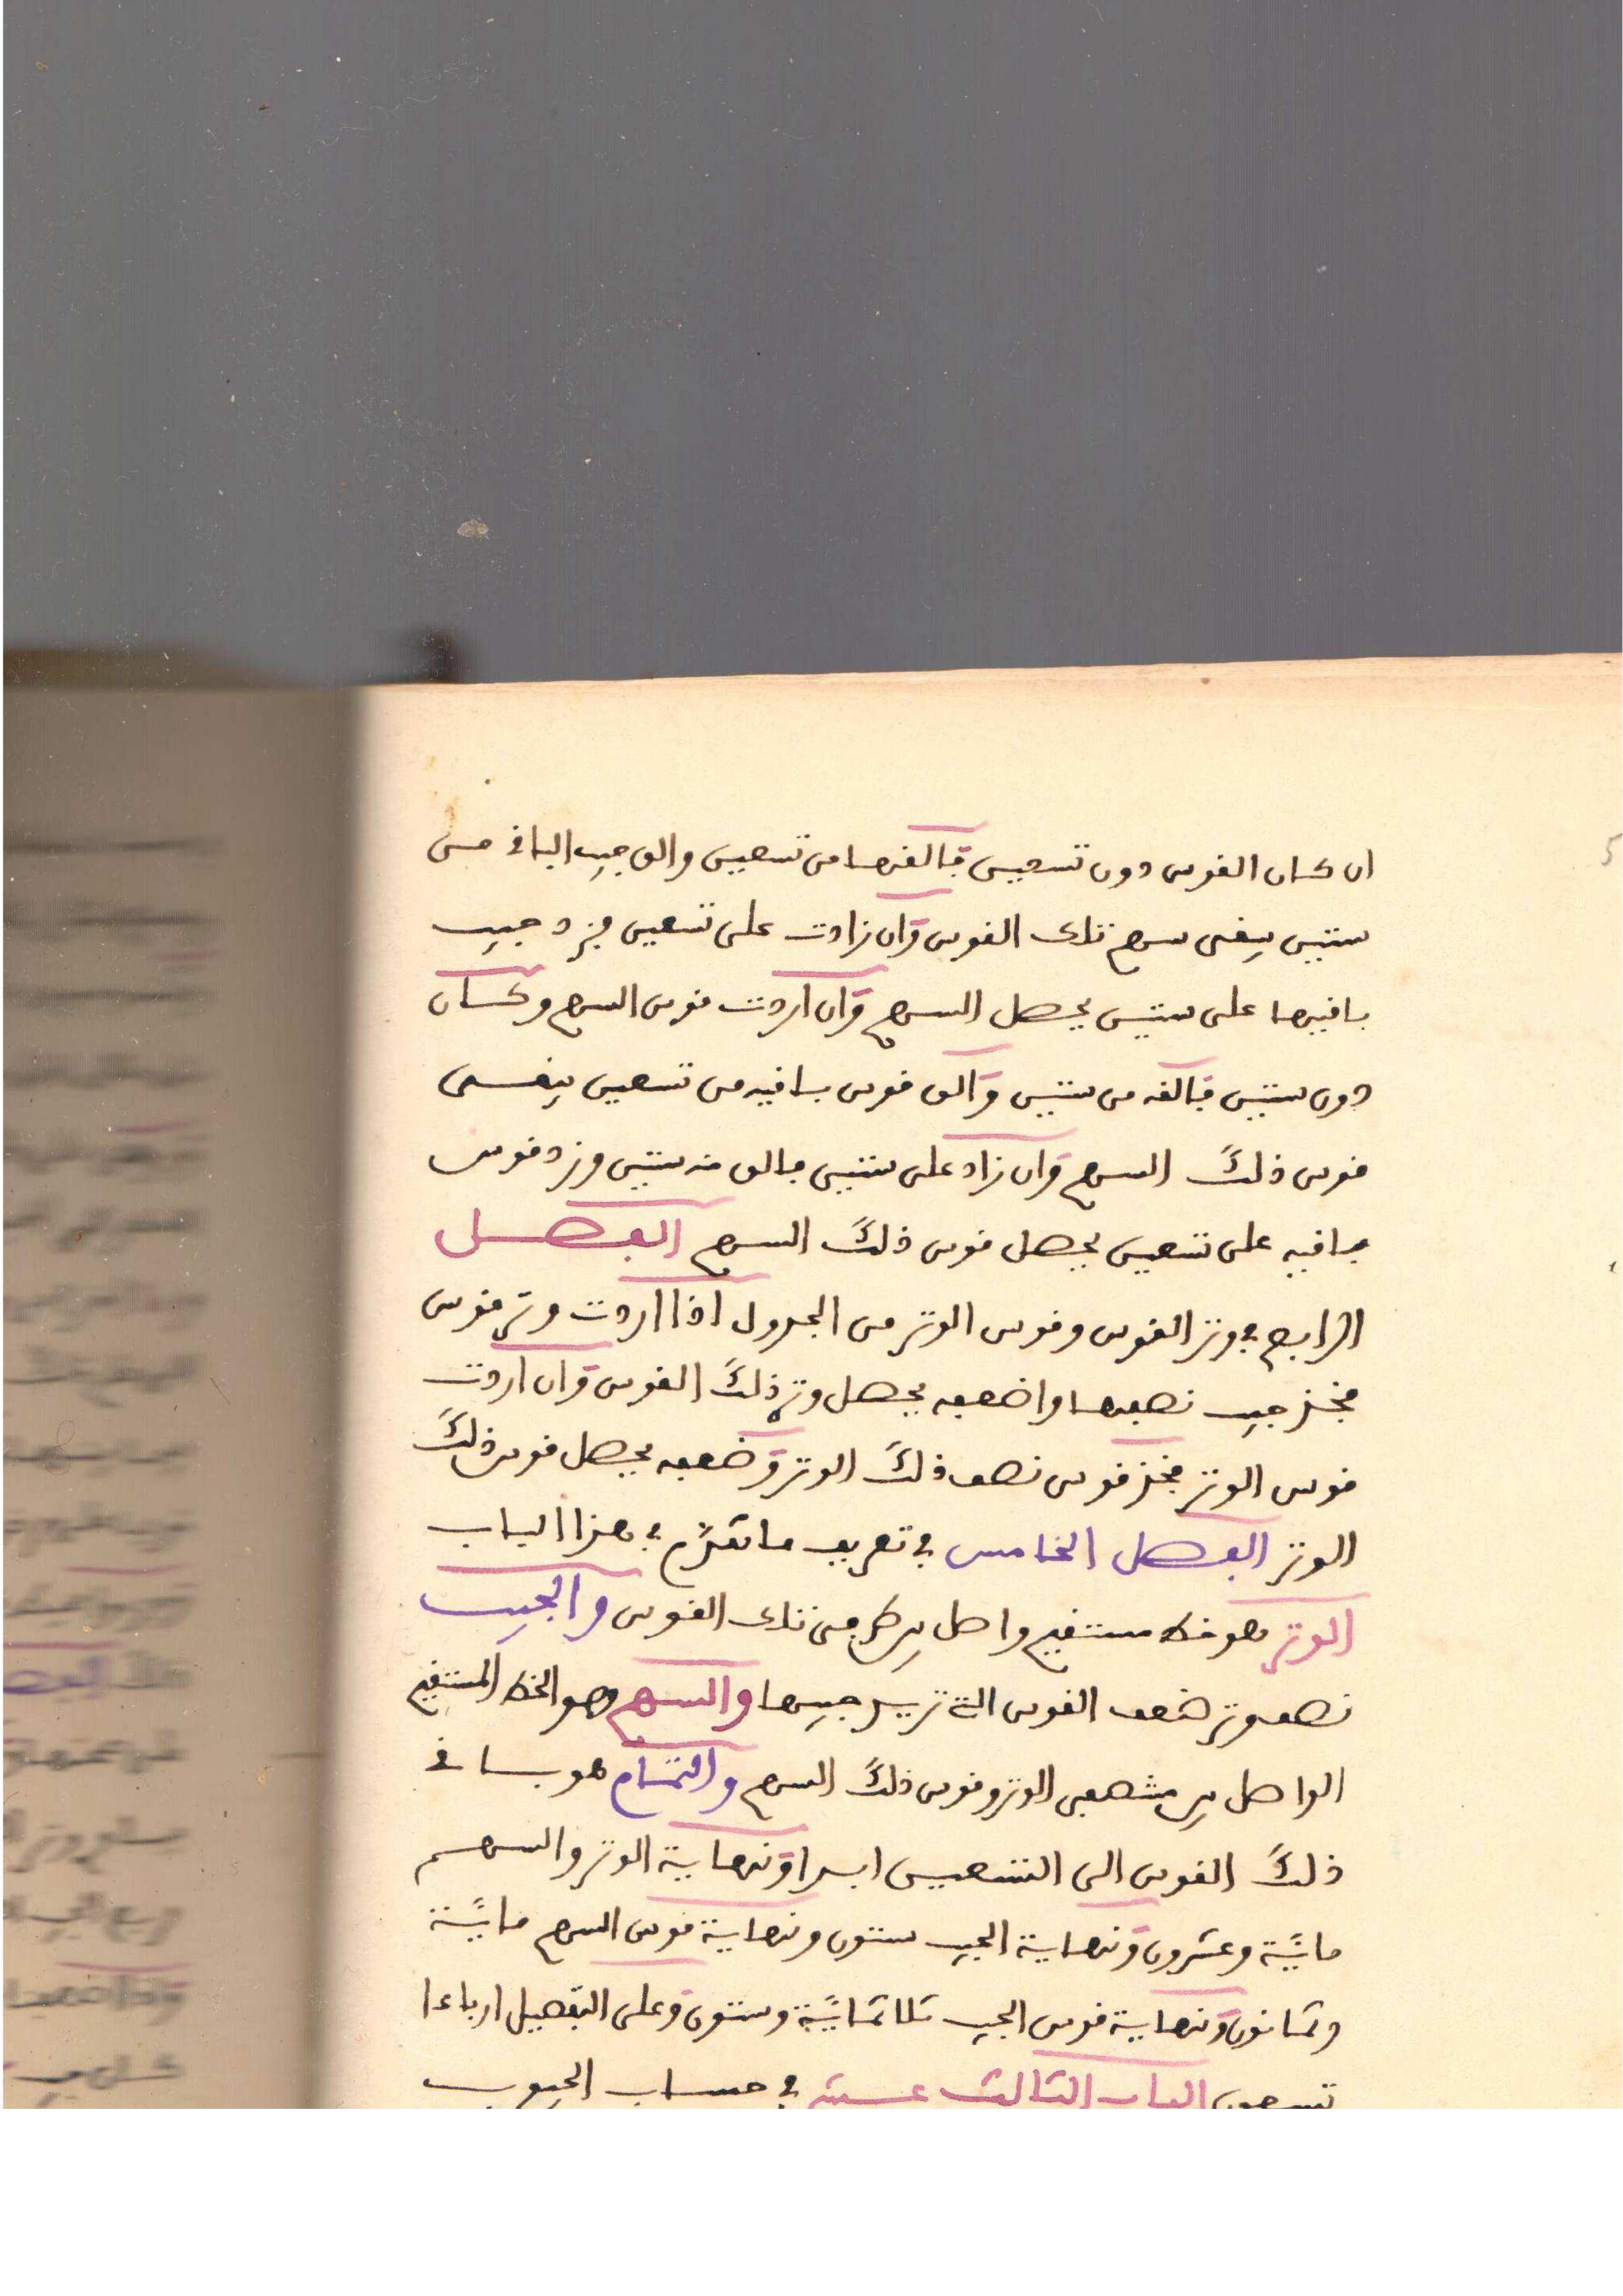 ان كان القوس دون تسعين فالقها من تسعين والق جيب الباقى من
ستين يبقى سهم تلك القوس وان زادت على تسعين فزد جيب
باقيها على ستين يحصل السهم وان اردت قوس السهم وكان
دون ستين فالقه من ستين والق قوس باقيه من تسعين يبقى
قوس ذلك السهم وان زاد على ستين فالق منه ستين وزد قوس
باقيه على تسعين يحصل قوس ذلك السهم الفصل
الرابع في وتر القوس وقوس الوتر من الجدول اذا اردت وتر قوس
فخذ جيب نصفها واضعفه يحصل وتر ذلك القوس وان اردت
قوس الوتر فخذ قوس نصف ذلك الوتر وضعفه يحصل قوس ذلك
الوتر الفصل الخامس في تعريف ما تقدم في هذا الباب
الوتر هو خط مستقيم واصل بين طرفي تلك القوس والجيب
نصف وتر ضعف القوس التي تريد جيبها والسهم وهو الخط المستقيم
الواصل بين منتصفي الوتر وقوس ذلك السهم والتمام هو باقى
ذلك القوس الى التسعين ابدا ونهاية الوتر والسهم
مائة وعشرون ونهاية الجيب ستون ونهاية قوس السهم مائة
وثمانون ونهاية قوس الجيب ثلاثمائة وستون وعلى التفصيل ارباعا
تسعون الباب الثالث عشر في حساب الجيوب